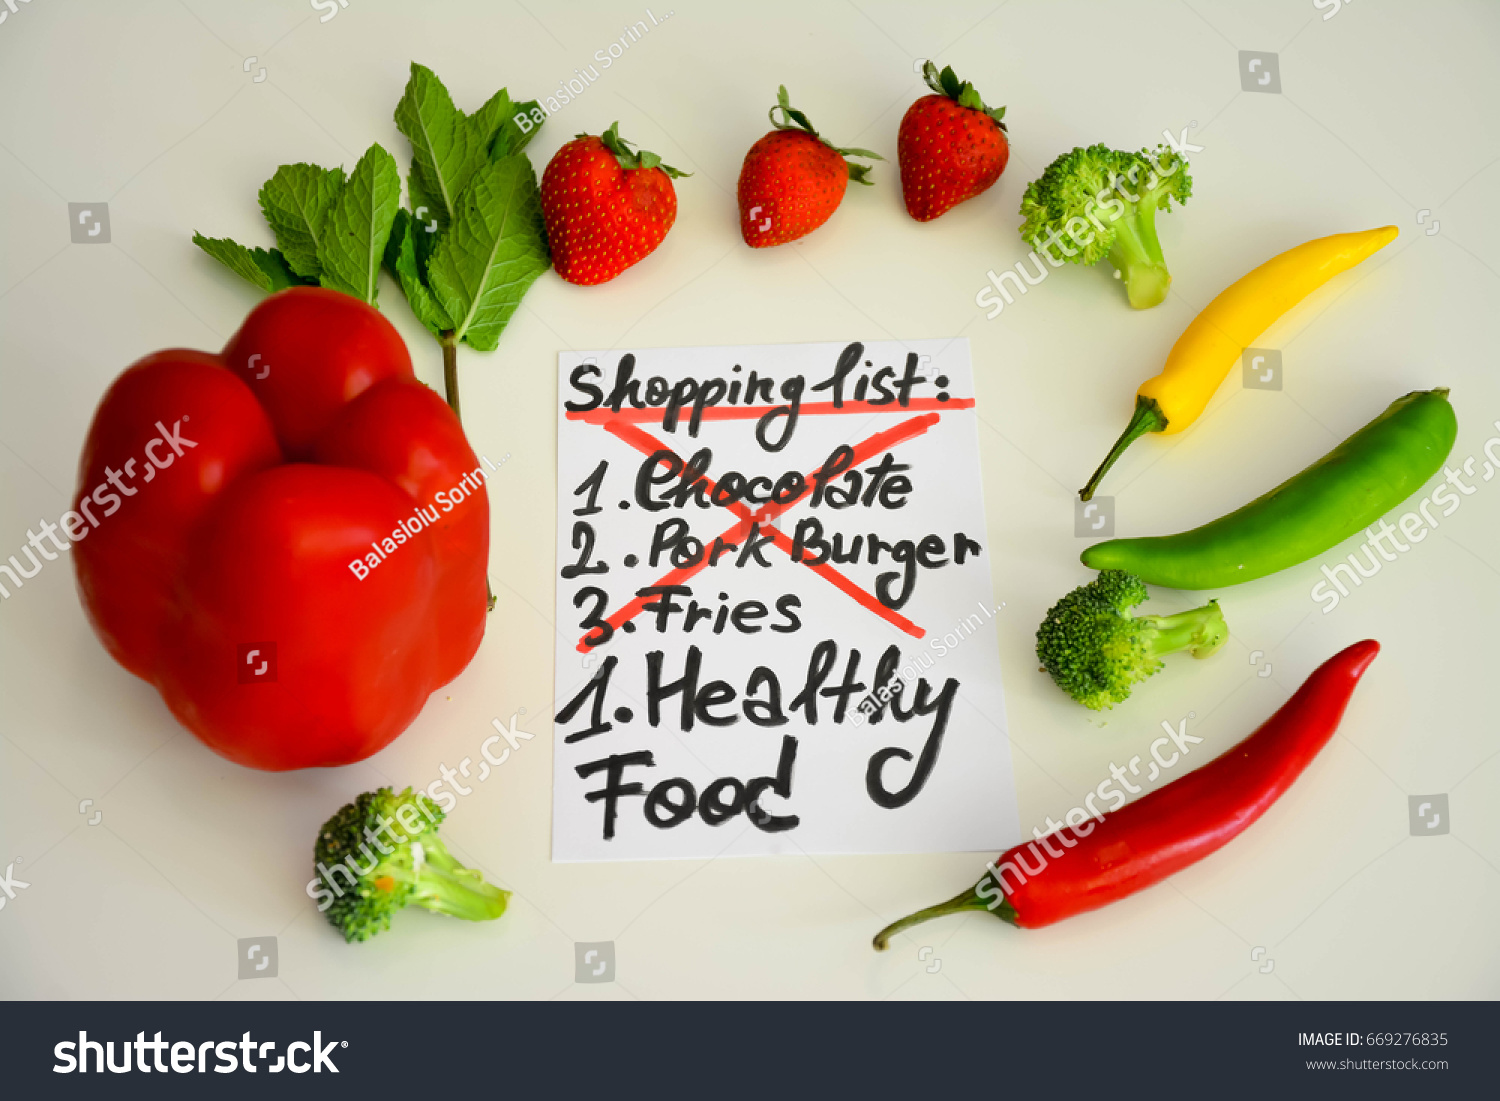 Shopping list:
1. Chocolate
2. Pork Burger
3. Fries
1. Healthy
Food
Balasioiu Sorin I...
shutterstock
shutterstock
Balasioiu Sorin I...
shutterstock
shutterstock
Balasioiu Sorin I...
shutterstock
shutterstock
shutterstock
shutterstock
shutterstock
IMAGE ID: 669276835
www.shutterstock.com